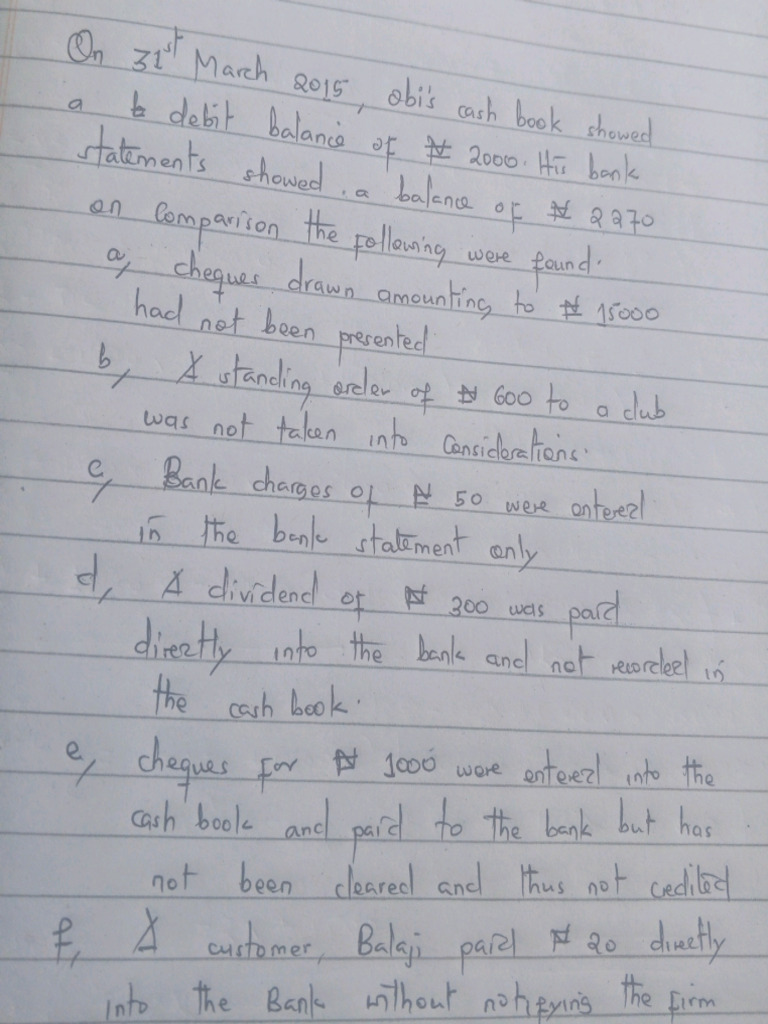 On 31st March 2015, obi's cash book showed
a debit balance of ₦ 2000. His bank
statements showed. a balance of ₦ 2270
on Comparison the following were found.
a, cheques drawn amounting to ₦ 15000
had not been presented
b, A standing order of ₦ 600 to a club
was not taken into Considerations.
c, Bank charges of ₦ 50 were entered
in the bank statement only
d, A dividend of ₦ 300 was paid
directly into the bank and not recorded in
the cash book.
e, cheques for ₦ 1000 were entered into the
cash book and paid to the bank but has
not been cleared and thus not credited
f, A customer, Balaji paid ₦ 20 directly
into the Bank without notifying the firm